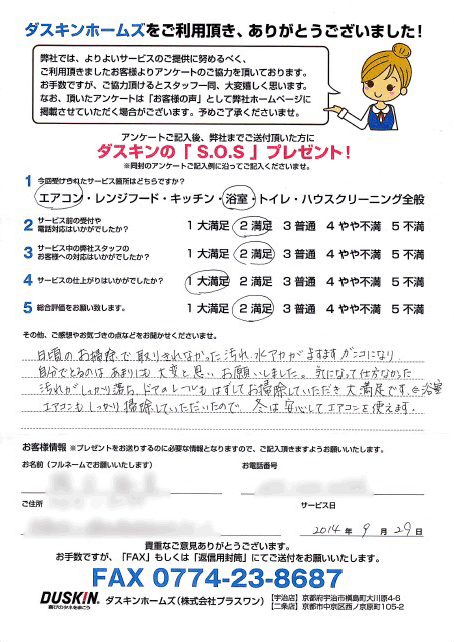 ダスキンホームズをご利用頂き、ありがとうございました！
弊社では、よりよいサービスのご提供に努めるべく、
ご利用頂きましたお客様よりアンケートのご協力を頂いております。
お手数ですが、ご協力頂けるとスタッフ一同、大変嬉しく思います。
なお、頂いたアンケートは「お客様の声」として弊社ホームページに
掲載させていただく場合がございます。予めご了承くださいませ。
アンケートご記入後、弊社までご送付頂いた方に
ダスキンの「S.O.S」プレゼント！
※同封のアンケートご記入例に沿ってご記入くださいませ。
1 今回受けられたサービス箇所はどちらですか？
エアコン・レンジフード・キッチン・浴室・トイレ・ハウスクリーニング全般
2 サービス前の受付や
電話対応はいかがでしたか？ 1 大満足 2 満足 3 普通 4 やや不満 5 不満
3 サービス中の弊社スタッフの
お客様への対応はいかがでしたか？ 1 大満足 2 満足 3 普通 4 やや不満 5 不満
4 サービスの仕上がりはいかがでしたか？ 1 大満足 2 満足 3 普通 4 やや不満 5 不満
5 総合評価をお願い致します。 1 大満足 2 満足 3 普通 4 やや不満 5 不満
その他、ご感想やお気づきの点などをお聞かせくださいませ。
日頃のお掃除で取りきれなかった汚れ、水アカがますますガンコになり
自分でとるのはあまりにも大変と思いお願いしました。気になって仕方なかった
汚れがしっかり落ち、ドアのレールもはずしてお掃除していただき大満足です。⇐浴室
エアコンもしっかり掃除していただいたので、冬は安心してエアコンを使えます。
お客様情報 ※プレゼントをお送りするのに必要な情報となりますので、ご記入頂けますようお願いいたします。
お名前（フルネームでお願いいたします） お電話番号
ご住所 サービス日
2014年 9月 29日
貴重なご意見ありがとうございます。
お手数ですが、「FAX」もしくは「返信用封筒」にてご送付をお願いいたします。
FAX 0774-23-8687
DUSKIN
喜びのタネをまこう
ダスキンホームズ（株式会社プラスワン）
［宇治店］京都府宇治市槇島町大川原4-6
［二条店］京都市中京区西ノ京原町105-2